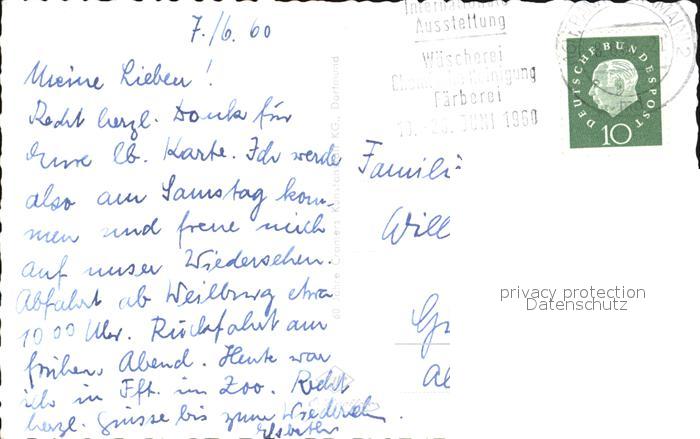 7./6. 60
Meine Lieben!
Recht herzl. Dank für
Eure lb. Karte. Ich werde
also am Samstag kom-
men und freue mich
auf unser Wiedersehen.
Abfahrt ab Weilburg etwa
10 00 Uhr. Rückfahrt am
frühen Abend. Heute war
ich in Fft. im Zoo. Recht
herzl. Grüsse bis zum Wiedersehn
Elsbeth
Internationale
Ausstellung
Wäscherei
Chem. Reinigung
Färberei
JUNI 1960
DEUTSCHE BUNDESPOST
10
60 Jahre Cramers Kunstanstalt KG., Dortmund
Famili
Will
privacy protection
Datenschutz
Gr